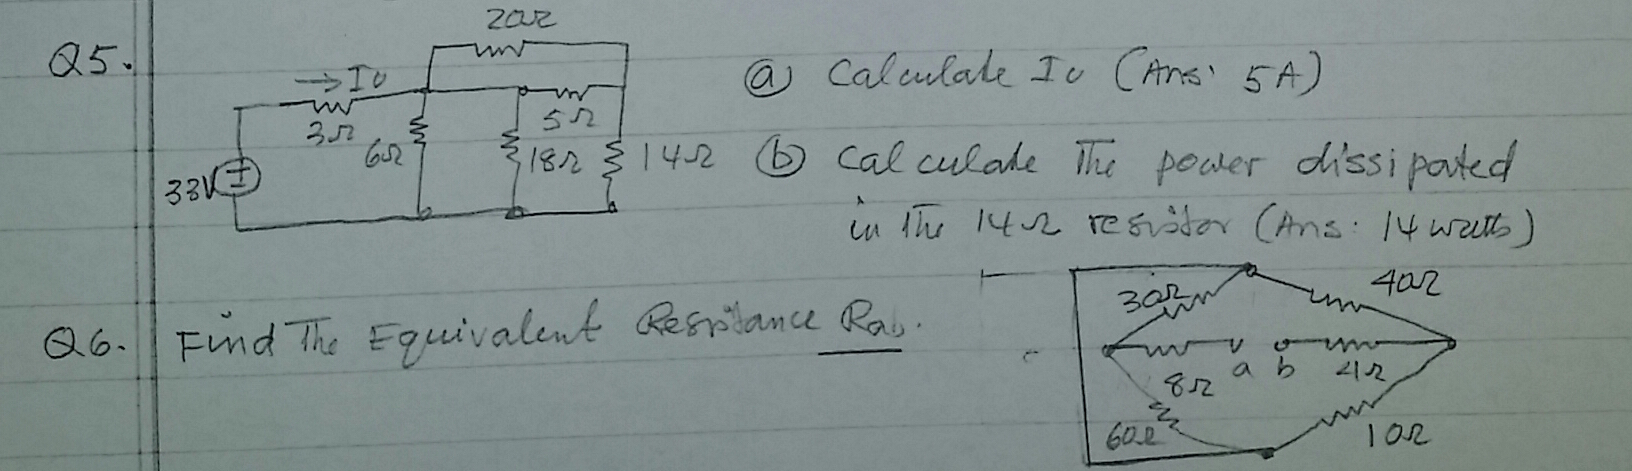 Q5.
20Ω
→ Io
3Ω
6Ω
33V
5Ω
18Ω
14Ω
ⓐ Calculate Io (Ans: 5A)
ⓑ Calculate The power dissipated
in The 14Ω resistor (Ans: 14 watts)
Q6. Find The Equivalent Resistance Rab.
30Ω
40Ω
8Ω
a b
4Ω
60Ω
10Ω